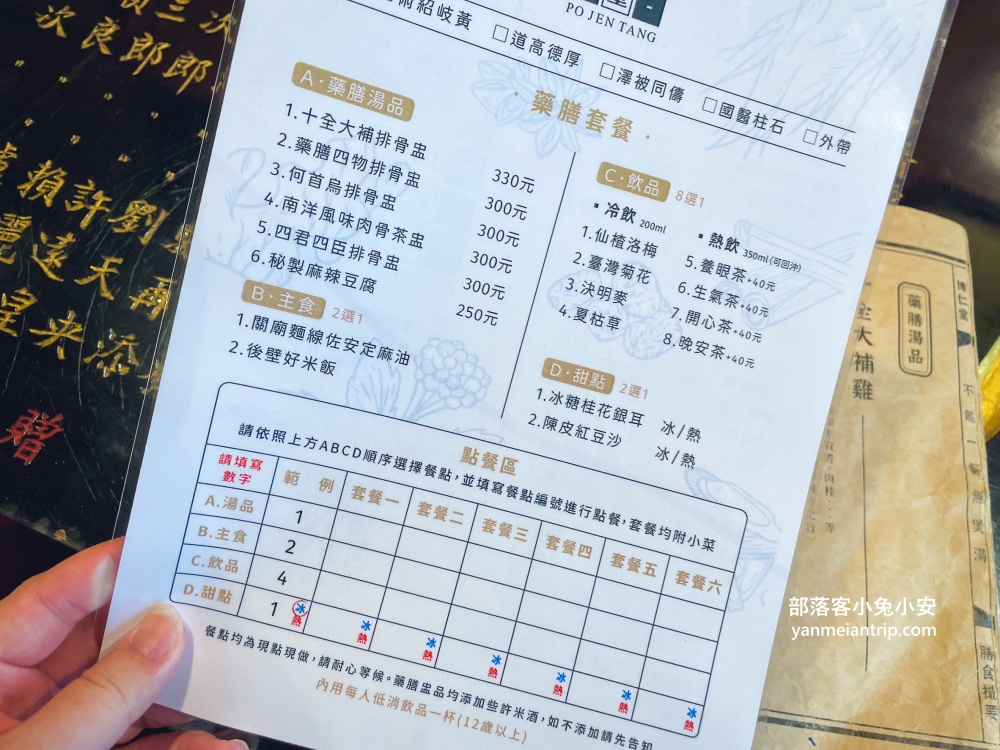 PO JEN TANG
術紹岐黃 □道高德厚 □澤被同儔 □國醫柱石 □外帶
·藥膳套餐·
A·藥膳湯品
1.十全大補排骨盅 330元
2.藥膳四物排骨盅 300元
3.何首烏排骨盅 300元
4.南洋風味肉骨茶盅 300元
5.四君四臣排骨盅 300元
6.秘製麻辣豆腐 250元
B·主食 2選1
1.關廟麵線佐安定麻油
2.後壁好米飯
C·飲品 8選1
▪冷飲 200ml
1.仙楂洛梅
2.臺灣菊花
3.決明麥
4.夏枯草
▪熱飲 350ml(可回沖)
5.養眼茶+40元
6.生氣茶+40元
7.開心茶+40元
8.晚安茶+40元
D·甜點 2選1
1.冰糖桂花銀耳 冰/熱
2.陳皮紅豆沙 冰/熱
點餐區
請依照上方ABCD順序選擇餐點,並填寫餐點編號進行點餐,套餐均附小菜
請填寫數字 範 例 套餐一 套餐二 套餐三 套餐四 套餐五 套餐六
A.湯品 1
B.主食 2
C.飲品 4
D.甜點 1 冰熱 冰熱 冰熱 冰熱 冰熱 冰熱 冰熱
餐點均為現點現做,請耐心等候。藥膳盅品均添加些許米酒,如不添加請先告知
內用每人低消飲品一杯(12歲以上)
博仁堂
藥膳湯品
全大補雞
不能一
無煲湯
膳食撮要
次良郎郎
賴許劉
達天
央添
贈
部落客小兔小安
yanmeiantrip.com